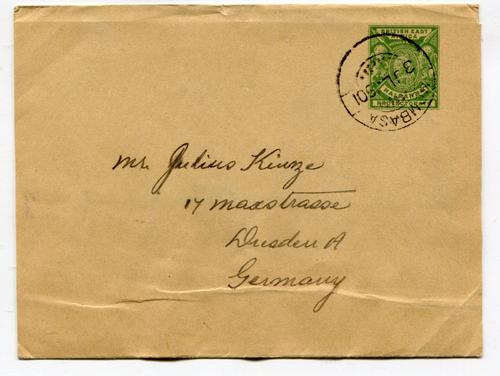 BRITISH EAST
AFRICA
HALF ANNA
MOMBASA
3 JL 01
Mr. Julius Kunze
17 Maxstrasse
Dresden A
Germany